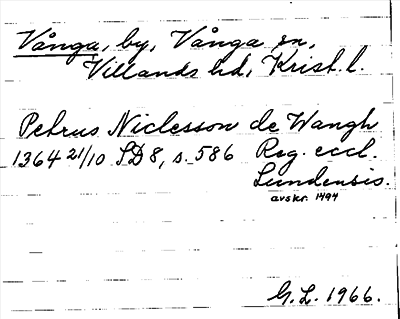 Vånga, by, Vånga sn,
Villands hd, Krist. l.
Petrus Niclesson de Wangh
1364 21/10 SD 8, s. 586 Reg. eccl.
Lundensis.
avskr. 1494
G.L. 1966.